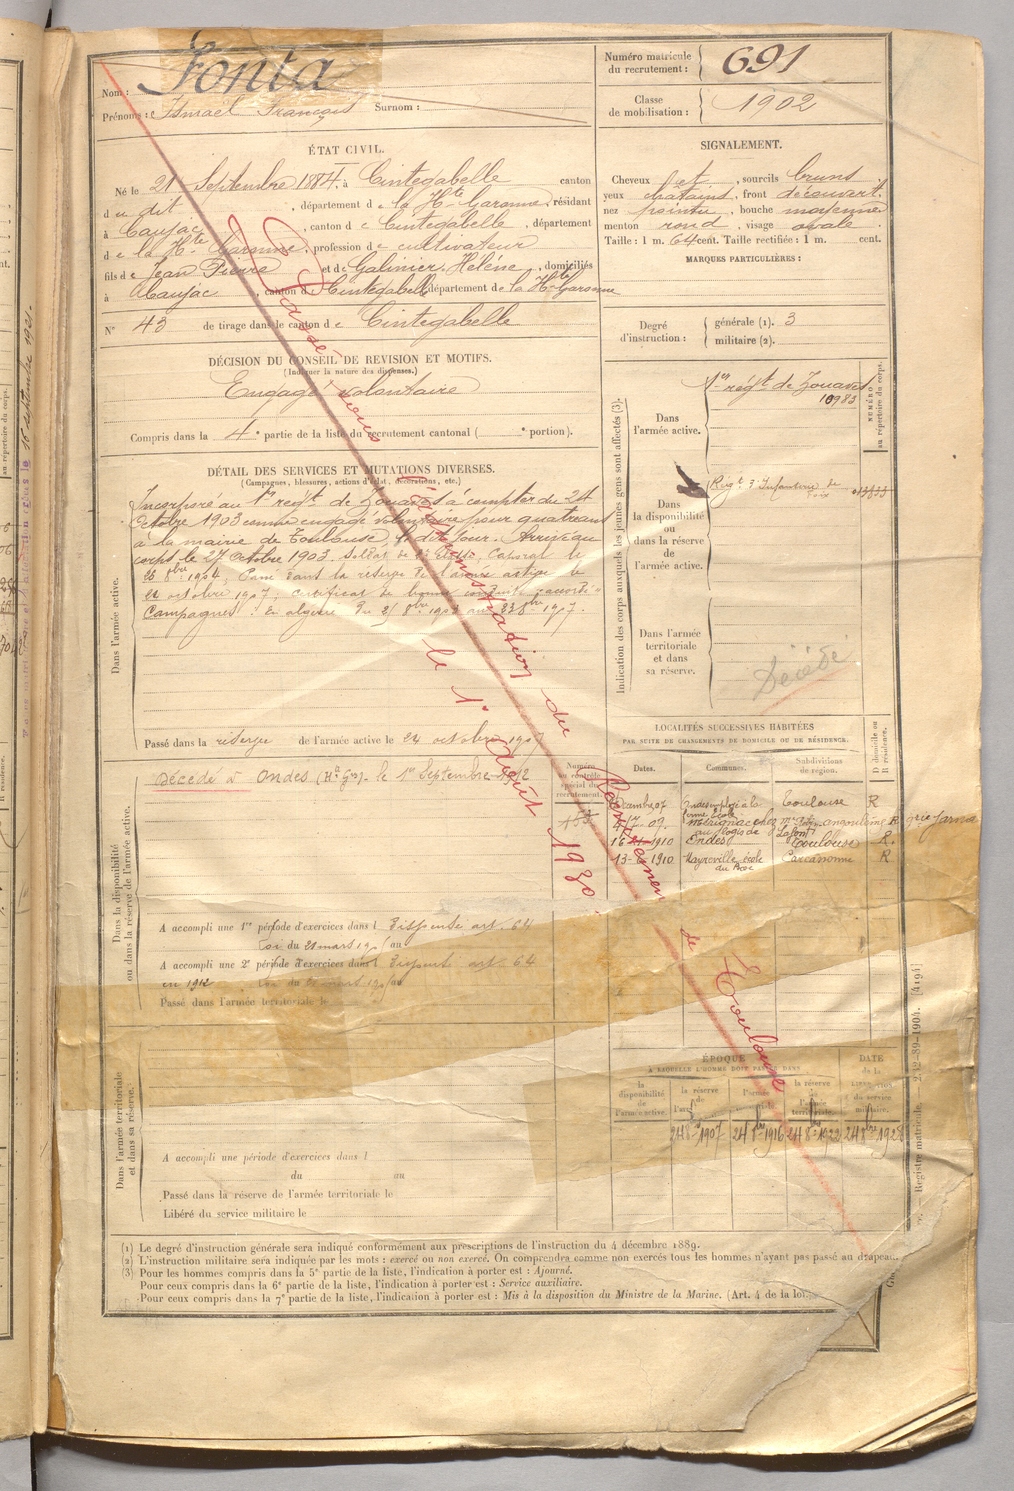 Nom : Fonta
Prénoms : Ismaël François Surnom :
Numéro matricule du recrutement : 691
Classe de mobilisation : 1902
ÉTAT CIVIL.
Né le 21 Septembre 1884, à Cintegabelle canton
du dit , département de la Hte Garonne, résidant
à Caujac , canton de Cintegabelle , département
de la Hte Garonne, profession de cultivateur
fils de Jean Pierre et de Galinier, Hélène , domiciliés
à Caujac , canton de Cintegabelle département de la Hte Garonne
N° 43 de tirage dans le canton de Cintegabelle
SIGNALEMENT.
Cheveux et , sourcils bruns
yeux chatains , front découvert,
nez pointu , bouche moyenne
menton rond , visage ovale .
Taille : 1 m. 64 cent. Taille rectifiée : 1 m. cent.
MARQUES PARTICULIÈRES :
Degré d'instruction : générale (1). 3
militaire (2).
DÉCISION DU CONSEIL DE REVISION ET MOTIFS.
(Indiquer la nature des dispenses.)
Engagé volontaire
Compris dans la 4e partie de la liste du recrutement cantonal ( e portion).
DÉTAIL DES SERVICES ET MUTATIONS DIVERSES.
(Campagnes, blessures, actions d'éclat, décorations, etc.)
Dans l'armée active.
Incorporé au 1er régt de Zouaves à compter du 24
Octobre 1903 comme engagé volontaire pour quatre ans
à la mairie de Toulouse, le dit jour. Arrivé au
corps le 27 Octobre 1903. Soldat de 2e classe, Caporal le
8bre 1904, Passé dans la réserve de l'armée active le
octobre 1907, certificat de bonne conduite accordé
Campagnes : En algérie du 8bre 1903 au 23 8bre 1907.
Passé dans la réserve de l'armée active le 24 octobre 1907
Indication des corps auxquels les jeunes gens sont affectés (3).
NUMÉRO au répertoire du corps.
Dans l'armée active.
1er régt de Zouaves
10983
Dans la disponibilité ou dans la réserve de l'armée active.
Régt d'Infanterie de Foix
Dans l'armée territoriale et dans sa réserve.
Décédé
LOCALITÉS SUCCESSIVES HABITÉES
PAR SUITE DE CHANGEMENTS DE DOMICILE OU DE RÉSIDENCE.
Numéro au contrôle spécial du recrutement. Dates. Communes. Subdivisions de région. D domicile ou R résidence.
07 Ondes employé à la ferme école Toulouse R
09. Mérignac chez Mr angoulême R
au logis de Lafont
1910 Ondes Toulouse R.
13- 1910 Mayreville école du Bosc Carcassonne R
Dans la disponibilité ou dans la réserve de l'armée active.
Décédé à Ondes (Hte Gne) le 1er Septembre 1912
A accompli une 1re période d'exercices dans l Dispensé art. 64
Loi du 21 mars 1905 au
A accompli une 2e période d'exercices dans l Dispensé art. 64
en 1912 Loi du 21 mars 1905 au
Passé dans l'armée territoriale le
Dans l'armée territoriale et dans sa réserve.
A accompli une période d'exercices dans l
du au
Passé dans la réserve de l'armée territoriale le
Libéré du service militaire le
ÉPOQUE
À LAQUELLE L'HOMME DOIT PASSER DANS
DATE de la LIBÉRATION du service militaire.
la disponibilité de l'armée active. la réserve de l'armée l'armée territoriale la réserve de l'armée territoriale.
24 8bre 1907 24 8bre 1916 24 8bre 1922 24 8bre 1928
Passé sous l'administration du Recrutement de Toulouse
le 1er Août 1930
(1) Le degré d'instruction générale sera indiqué conformément aux prescriptions de l'instruction du 4 décembre 1889.
(2) L'instruction militaire sera indiquée par les mots : exercé ou non exercé. On comprendra comme non exercés tous les hommes n'ayant pas passé au drapeau.
(3) Pour les hommes compris dans la 5e partie de la liste, l'indication à porter est : Ajourné.
Pour ceux compris dans la 6e partie de la liste, l'indication à porter est : Service auxiliaire.
Pour ceux compris dans la 7e partie de la liste, l'indication à porter est : Mis à la disposition du Ministre de la Marine. (Art. 4 de la loi.
Registre matricule. 2.12-89-1904. [4194]